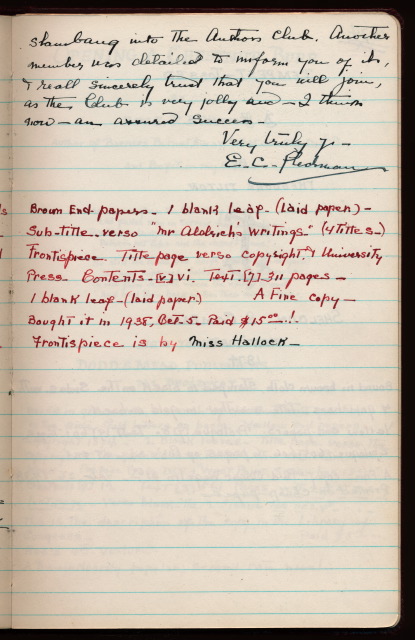 slambang into the Authors Club. Another
member was detailed to inform you of it,
& I really sincerely trust that you will join,
as the Club is very jolly and — I think
now — an assured success —
Very truly yr —
E. C. Stedman
Brown End-papers. 1 blank leaf — (laid paper.) —
Sub-title verso "Mr Aldrich's Writings" (4 titles —)
Frontispiece. Title page verso copyright & University
Press — Contents — [v] vi. Text. [7] 311 pages —
1 blank leaf — (laid paper.) A Fine copy —
Bought it in 1938, Oct. 5. Paid $15.00 — !
Frontispiece is by Miss Hallock —